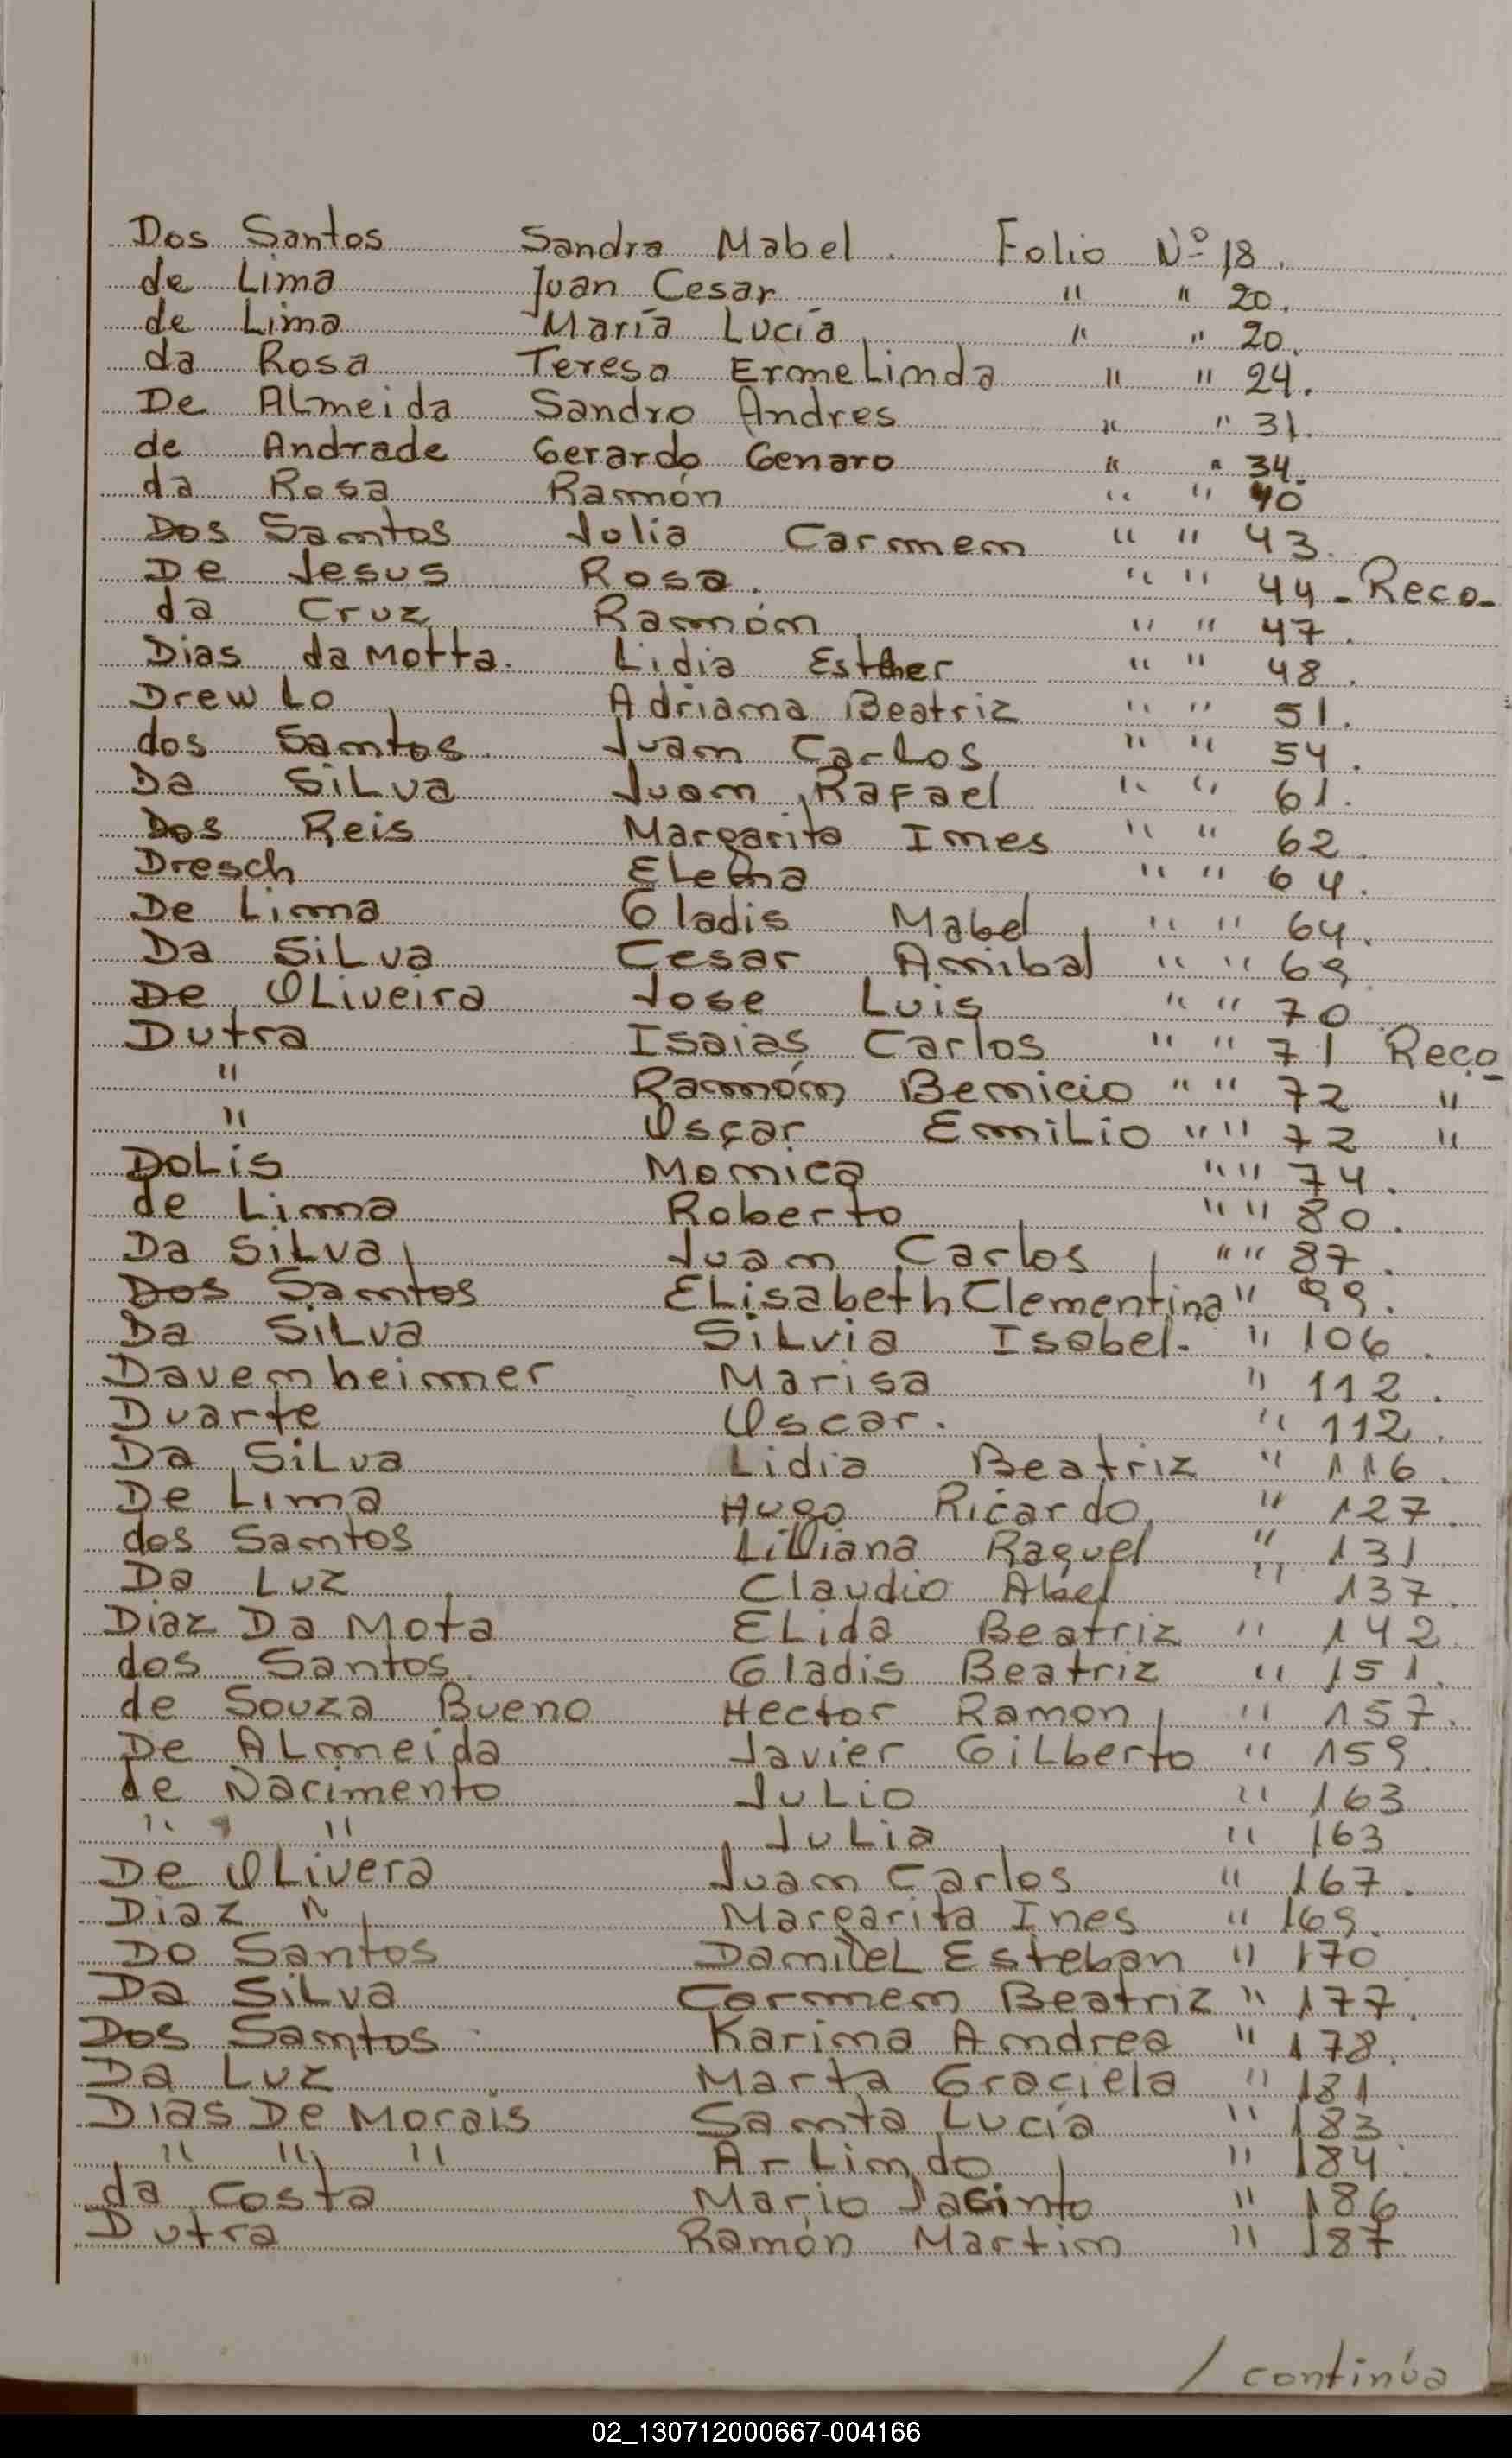 Dos Santos Sandra Mabel. Folio Nº 18.
de Lima Juan Cesar " " 20.
de Lima María Lucía " " 20.
da Rosa Teresa Ermelinda " " 24.
De Almeida Sandro Andres " " 31.
de Andrade Gerardo Genaro " " 34.
da Rosa Ramón " " 40
Dos Santos Julia Carmen " " 43.
De Jesus Rosa. " " 44 - Reco-
da Cruz Ramón " " 47.
Dias da Motta. Lidia Esther " " 48.
Drewlo Adriana Beatriz " " 51.
dos Santos Juan Carlos " " 54.
Da Silva Juan Rafael " " 61.
Dos Reis Margarita Ines " " 62.
Dresch Elena " " 64.
De Lima Gladis Mabel " " 64.
Da Silva Cesar Anibal " " 69
De Oliveira Jose Luis " " 70
Dutra Isaias Carlos " " 71 Reco-
" Ramón Benicio " " 72 "
" Oscar Emilio " " 72 "
Dolis Monica " " 74.
de Lima Roberto " " 80.
Da Silva Juan Carlos " " 87.
Dos Santos Elisabeth Clementina " 99.
Da Silva Silvia Isabel. " 106.
Davenheimer Marisa " 112.
Duarte Oscar. " 112.
Da Silva Lidia Beatriz " 116.
De Lima Hugo Ricardo " 127.
dos Santos Liliana Raquel " 131
Da Luz Claudio Abel " 137.
Diaz Da Mota Elida Beatriz " 142.
dos Santos Gladis Beatriz " 151.
de Souza Bueno Hector Ramon " 157.
De Almeida Javier Gilberto " 159.
de Nacimento Julio " 163
" " Julia " 163
De Olivera Juan Carlos " 167.
Diaz Margarita Ines " 169.
Do Santos Daniel Esteban " 170
Da Silva Carmen Beatriz " 177.
Dos Santos Karina Andrea " 178.
Da Luz Marta Graciela " 181
Dias De Morais Santa Lucía " 183
" " " Arlindo " 184.
da Costa Mario Jacinto " 186
Dutra Ramón Martin " 187
/ continúa
02_130712000667-004166